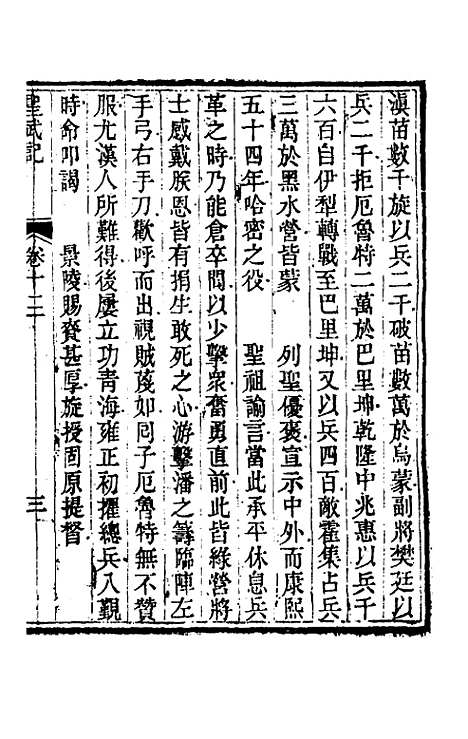 滇苗數千旋以兵二千破苗數萬於烏蒙副將樊廷以
兵二千拒厄魯特二萬於巴里坤乾隆中兆惠以兵千
六百自伊犁轉戰至巴里坤又以兵四百敵霍集占兵
三萬於黑水營皆蒙　列聖優褒宣示中外而康熙
五十四年哈密之役　聖祖諭言當此承平休息兵
革之時乃能倉卒間以少擊衆奮勇直前此皆綠營將
士感戴朕恩皆有捐生敢死之心游擊潘之籌臨陣左
手弓右手刀歡呼而出視賊蔑如同子厄魯特無不贊
服尤漢人所難得後屢立功青海雍正初擢總兵入覲
時命叩謁　景陵賜賚甚厚旋授固原提督
聖武記　卷十二　三